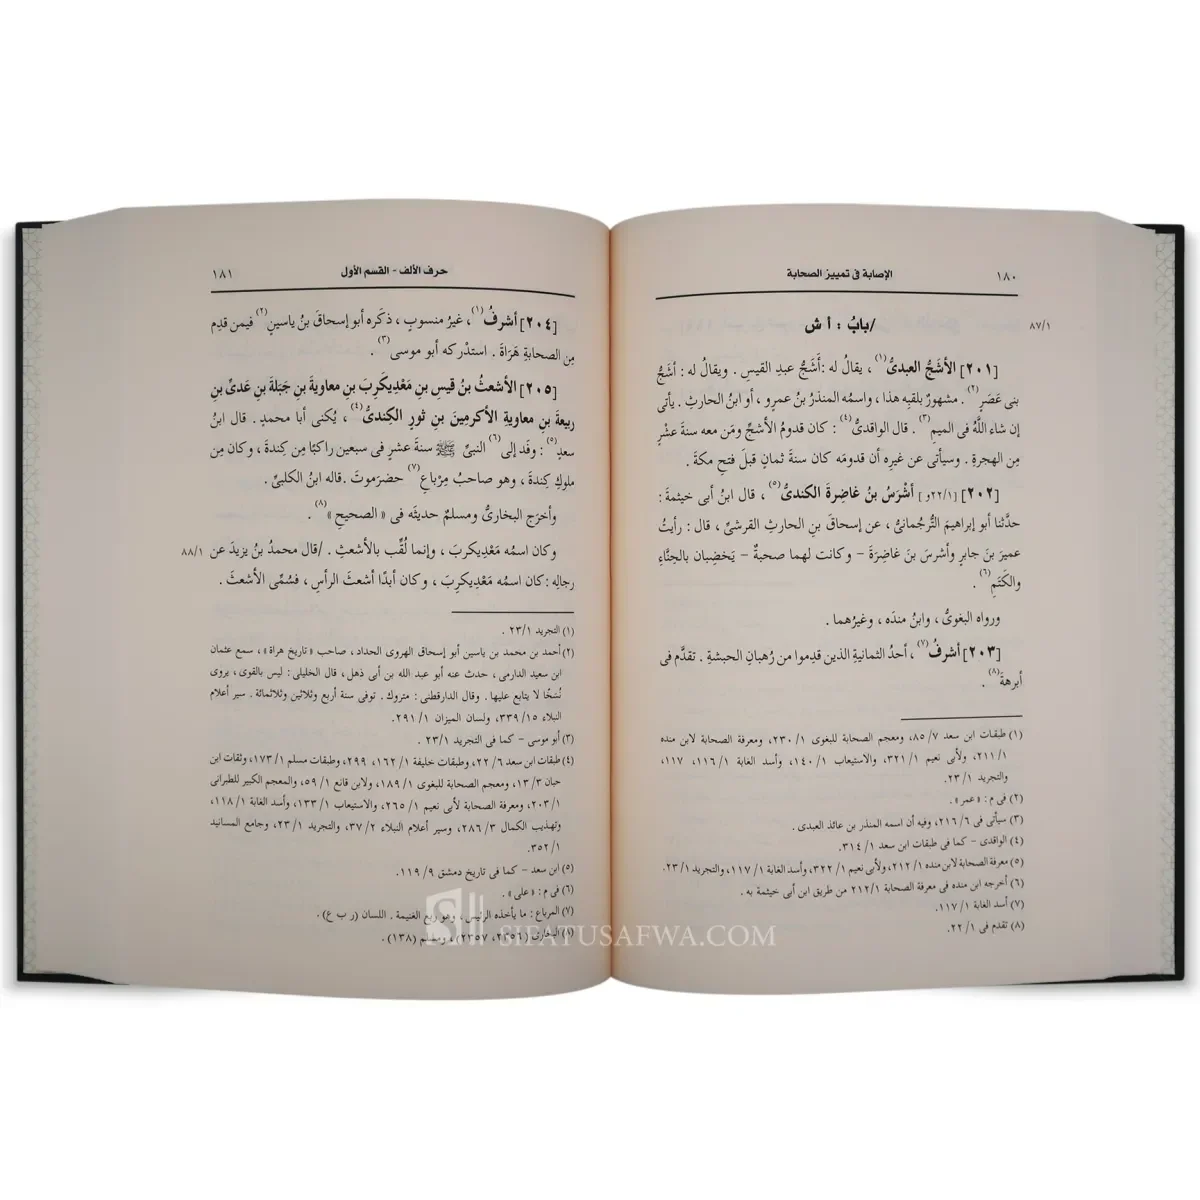 ١٨٠
الإصابة فى تمييز الصحابة
٨٧/١
/بابُ : أ ش
[٢٠١] الأشَجُّ العبدىُّ(١) ، يقالُ له :أَشَجُّ عبدِ القيسِ . ويقالُ له : أشَجُّ
بنى عَصَرٍ(٢). مشهورٌ بلقبِه هذا ، واسمُه المنذرُ بنُ عمرٍو ، أو ابنُ الحارثِ . يأتى
إن شاء اللَّهُ فى الميمِ(٣) . قال الواقدىُّ(٤) : كان قدومُ الأشجِّ ومَن معه سنةَ عشْرٍ
مِن الهجرةِ . وسيأتى عن غيرِه أن قدومَه كان سنةَ ثمانٍ قبلَ فتحِ مكةَ .
[٢٠٢] [٢٢/١و] أشْرَسُ بنُ غاضِرةَ الكندىُّ(٥) ، قال ابنُ أبى خيثمةَ :
حدَّثنا أبو إبراهيمَ التُّرجُمانىُّ ، عن إسحاقَ بنِ الحارثِ القرشىِّ ، قال : رأيتُ
عميرَ بنَ جابرٍ وأشرسَ بنَ غاضِرَةَ – وكانت لهما صحبةٌ – يَخضِبان بالحِنَّاءِ
والكَتَمِ(٦) .
ورواه البغوىُّ ، وابنُ منده ، وغيرُهما .
[٢٠٣] أشرفُ(٧) ، أحدُ الثمانيةِ الذين قدِموا من رُهبانِ الحبشةِ . تقدَّم فى
أبرهةَ(٨) .
(١) طبقات ابن سعد ٨٥/٧، ومعجم الصحابة للبغوى ٢٣٠/١، ومعرفة الصحابة لابن منده
٢١١/١، ولأبى نعيم ٣٢١/١، والاستيعاب ١٤٠/١، وأسد الغابة ١١٦/١، ١١٧،
والتجريد ٢٣/١.
(٢) فى م : «عمر» .
(٣) سيأتى فى ٢١٦/٦، وفيه أن اسمه المنذر بن عائذ العبدى .
(٤) الواقدى – كما فى طبقات ابن سعد ٣١٤/١ .
(٥) معرفة الصحابة لابن منده ٢١٢/١، ولأبى نعيم ٣٢٢/١، وأسد الغابة ١١٧/١، والتجريد ٢٣/١.
(٦) أخرجه ابن منده فى معرفة الصحابة ٢١٢/١ من طريق ابن أبى خيثمة به .
(٧) أسد الغابة ١١٧/١.
(٨) تقدم فى ٢٢/١.
حرف الألف – القسم الأول
١٨١
[٢٠٤] أشرفُ(١) ، غيرُ منسوبٍ ، ذكَره أبو إسحاقَ بنُ ياسينٍ(٢) فيمن قدِم
مِن الصحابةِ هَرَاةَ . استدْركه أبو موسى(٣) .
[٢٠٥] الأشعثُ بنُ قيسِ بنِ مَعْدِيكَرِبَ بنِ معاويةَ بنِ جَبَلةَ بنِ عَدىِّ بنِ
ربيعةَ بنِ معاويةِ الأكرمِينَ بنِ ثورٍ الكِندىُّ(٤) ، يُكنى أبا محمدٍ . قال ابنُ
سعدٍ(٥) : وفَد إلى(٦) النبىِّ ﷺ سنةَ عشرٍ فى سبعين راكبًا مِن كِندةَ ، وكان مِن
ملوكِ كِندةَ ، وهو صاحبُ مِرْباعِ(٧) حضْرَموتَ .قاله ابنُ الكلبىِّ .
وأخرَج البخارىُّ ومسلمٌ حديثَه فى «الصحيحِ»(٨) .
وكان اسمُه مَعْدِيكربَ ، وإنما لُقِّب بالأشعثِ . /قال محمدُ بنُ يزيدَ عن
٨٨/١
رجالِه :كان اسمُه مَعْدِيكرِبَ ، وكان أبدًا أشعثَ الرأسِ ، فسُمِّى الأشعثَ .
(١) التجريد ٢٣/١ .
(٢) أحمد بن محمد بن ياسين أبو إسحاق الهروى الحداد، صاحب «تاريخ هراة»، سمع عثمان
ابن سعيد الدارمى، حدث عنه أبو عبد الله بن أبى ذهل، قال الخليلى: ليس بالقوى، يروى
نُسَخًا لا يتابع عليها. وقال الدارقطنى: متروك. توفى سنة أربع وثلاثين وثلاثمائة. سير أعلام
النبلاء ٣٣٩/١٥، ولسان الميزان ٢٩١/١.
(٣) أبو موسى – كما فى التجريد ٢٣/١ .
(٤) طبقات ابن سعد ٢٢/٦، وطبقات خليفة ١٦٢/١، ٢٩٩، وطبقات مسلم ١٧٣/١، وثقات ابن
حبان ١٣/٣، ومعجم الصحابة للبغوى ١٨٩/١، ولابن قانع ٥٩/١، والمعجم الكبير للطبرانى
٢٠٣/١، ومعرفة الصحابة لأبى نعيم ٢٦٥/١، والاستيعاب ١٣٣/١، وأسد الغابة ١١٨/١،
وتهذيب الكمال ٢٨٦/٣، وسير أعلام النبلاء ٣٧/٢، والتجريد ٢٣/١، وجامع المسانيد
٣٥٢/١.
(٥) ابن سعد – كما فى تاريخ دمشق ١١٩/٩.
(٦) فى م : «على» .
(٧) المرباع: ما يأخذه الرئيس، وهو ربع الغنيمة. اللسان (ر ب ع).
(٨) البخارى (٢٣٥٦، ٢٣٥٧)، ومسلم (١٣٨).
SIFATUSAFWA.COM